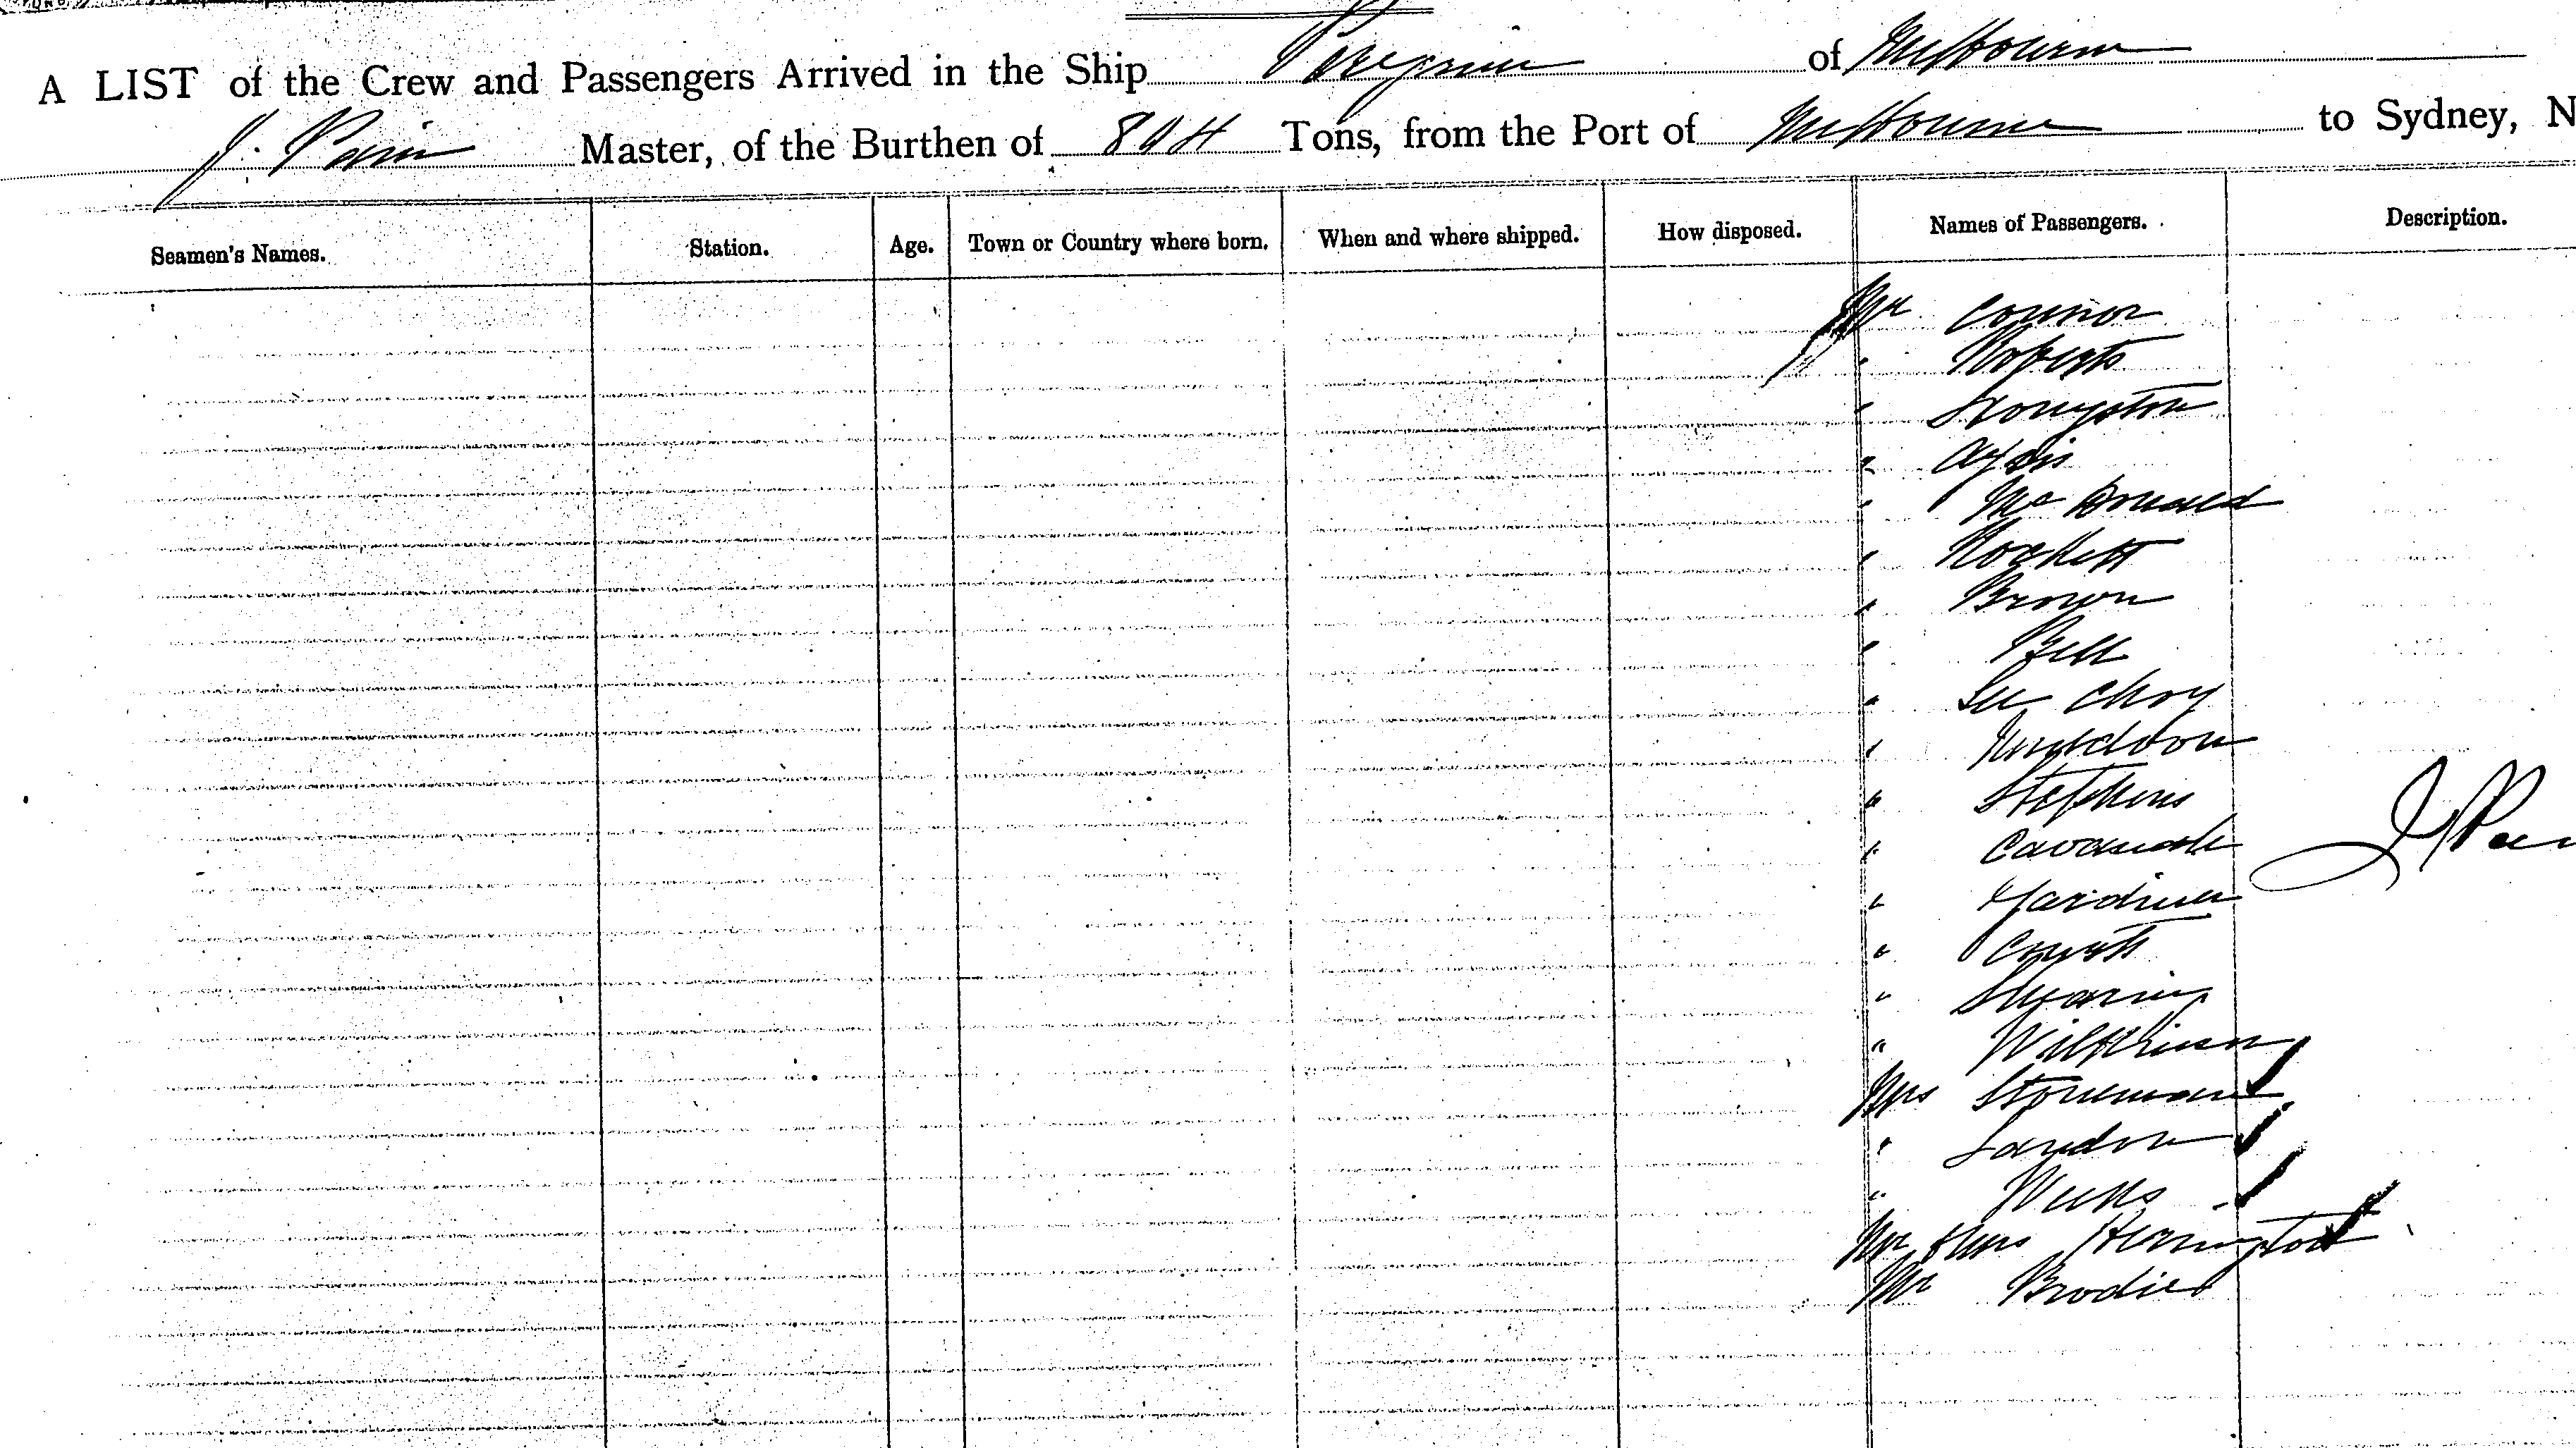 A LIST of the Crew and Passengers Arrived in the Ship Peregrine of Melbourne
J. Pain Master, of the Burthen of 804 Tons, from the Port of Melbourne to Sydney, N
Seamen's Names. Station. Age. Town or Country where born. When and where shipped. How disposed. Names of Passengers. Description.
Mr Connor
" Roberts
"
"
" McDonald
" Rockett
" Brown
" Bell
" Lee Choy
"
" Stephens
" Cavanah
" Gardiner
"
" Shearing
" Wilkinson
Mrs Stoneman
" Landon
" Weeks
Mr & Mrs Herrington
Mr Brodie
J Pain